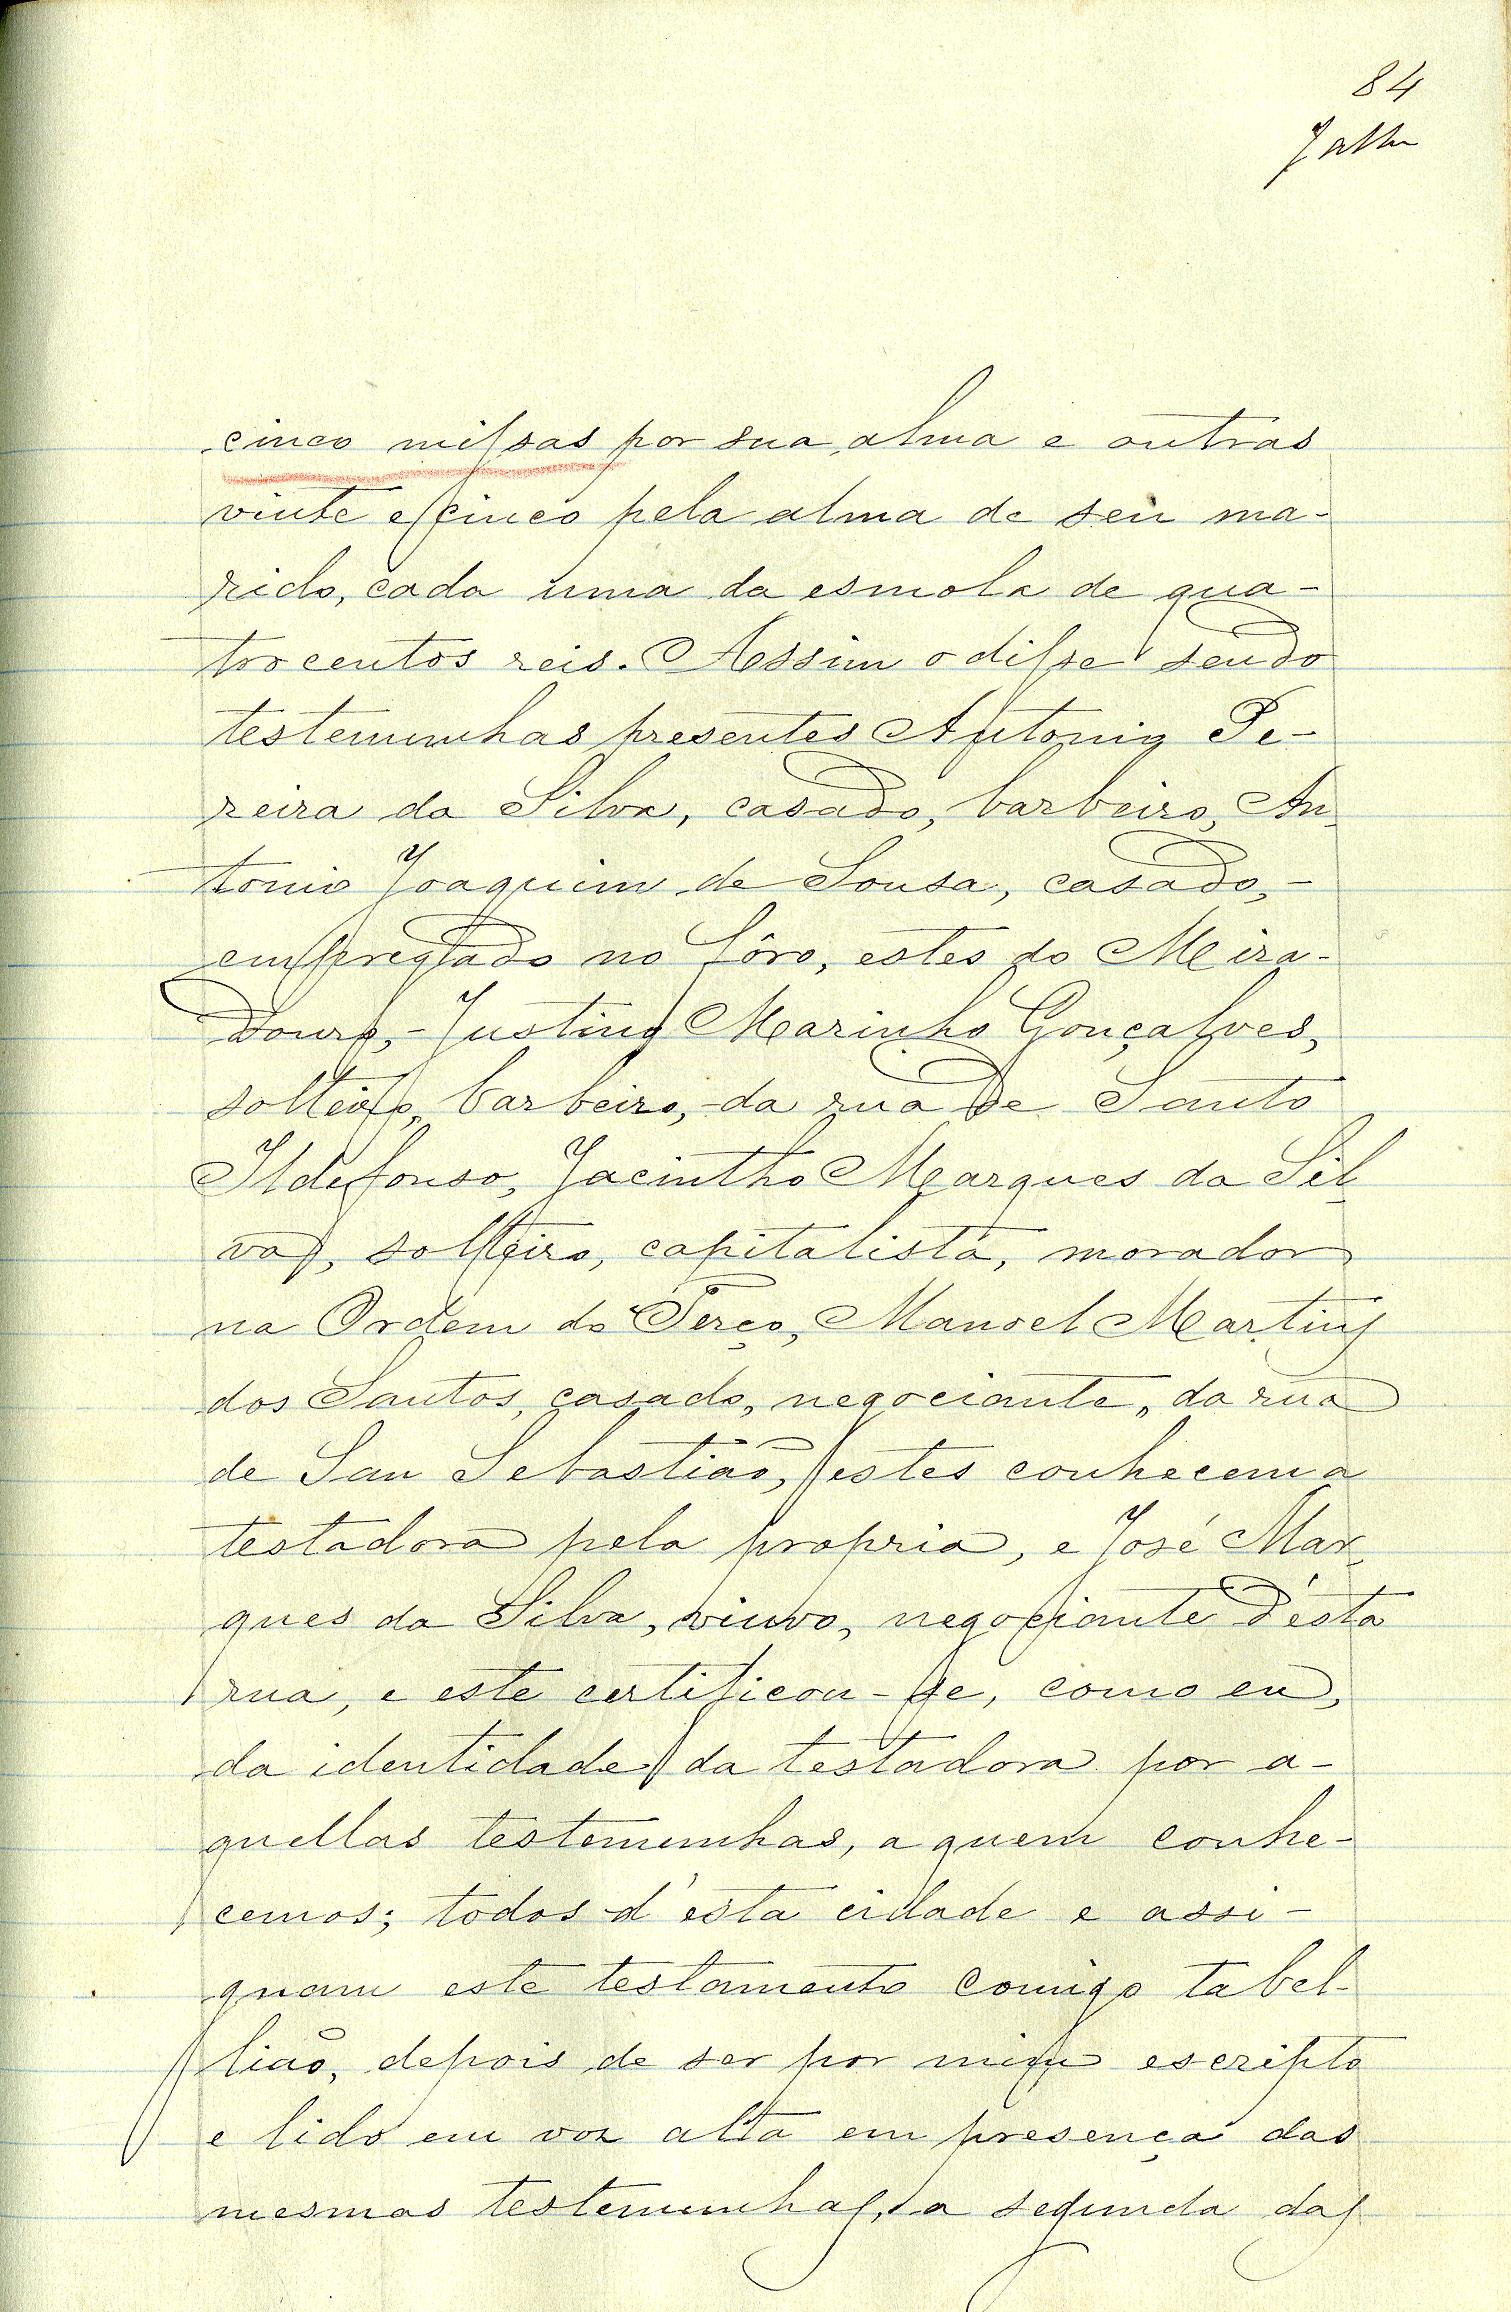 84
cinco missas por sua alma e outras
vinte e cinco pela alma de seu ma-
rido, cada uma da esmola de qua-
trocentos reis. Assim o disse sendo
testemunhas presentes Antonio Pe-
reira da Silva, casado, barbeiro, An-
tonio Joaquim de Sousa, casado,-
empregado no fôro, estes do Mira-
douro,- Justino Marinho Gonçalves,
solteiro, barbeiro,-da rua de Santo
Ildefonso, Jacintho Marques da Sil-
va, solteiro, capitalista, morador
na Ordem do Terço, Manoel Martins
dos Santos, casado, negociante, da rua
de San Sebastião, estes conhecem a
testadora pela propria, e José Mar-
ques da Silva, viuvo, negociante d'esta
rua, e este certificou-se, como eu,
da identidade da testadora por a-
quellas testemunhas, a quem conhe-
cemos; todos d'esta cidade e assi-
gnam este testamento comigo tabel-
lião, depois de ser por mim escripto
e lido em voz alta em presença das
mesmas testemunhas, a segunda das